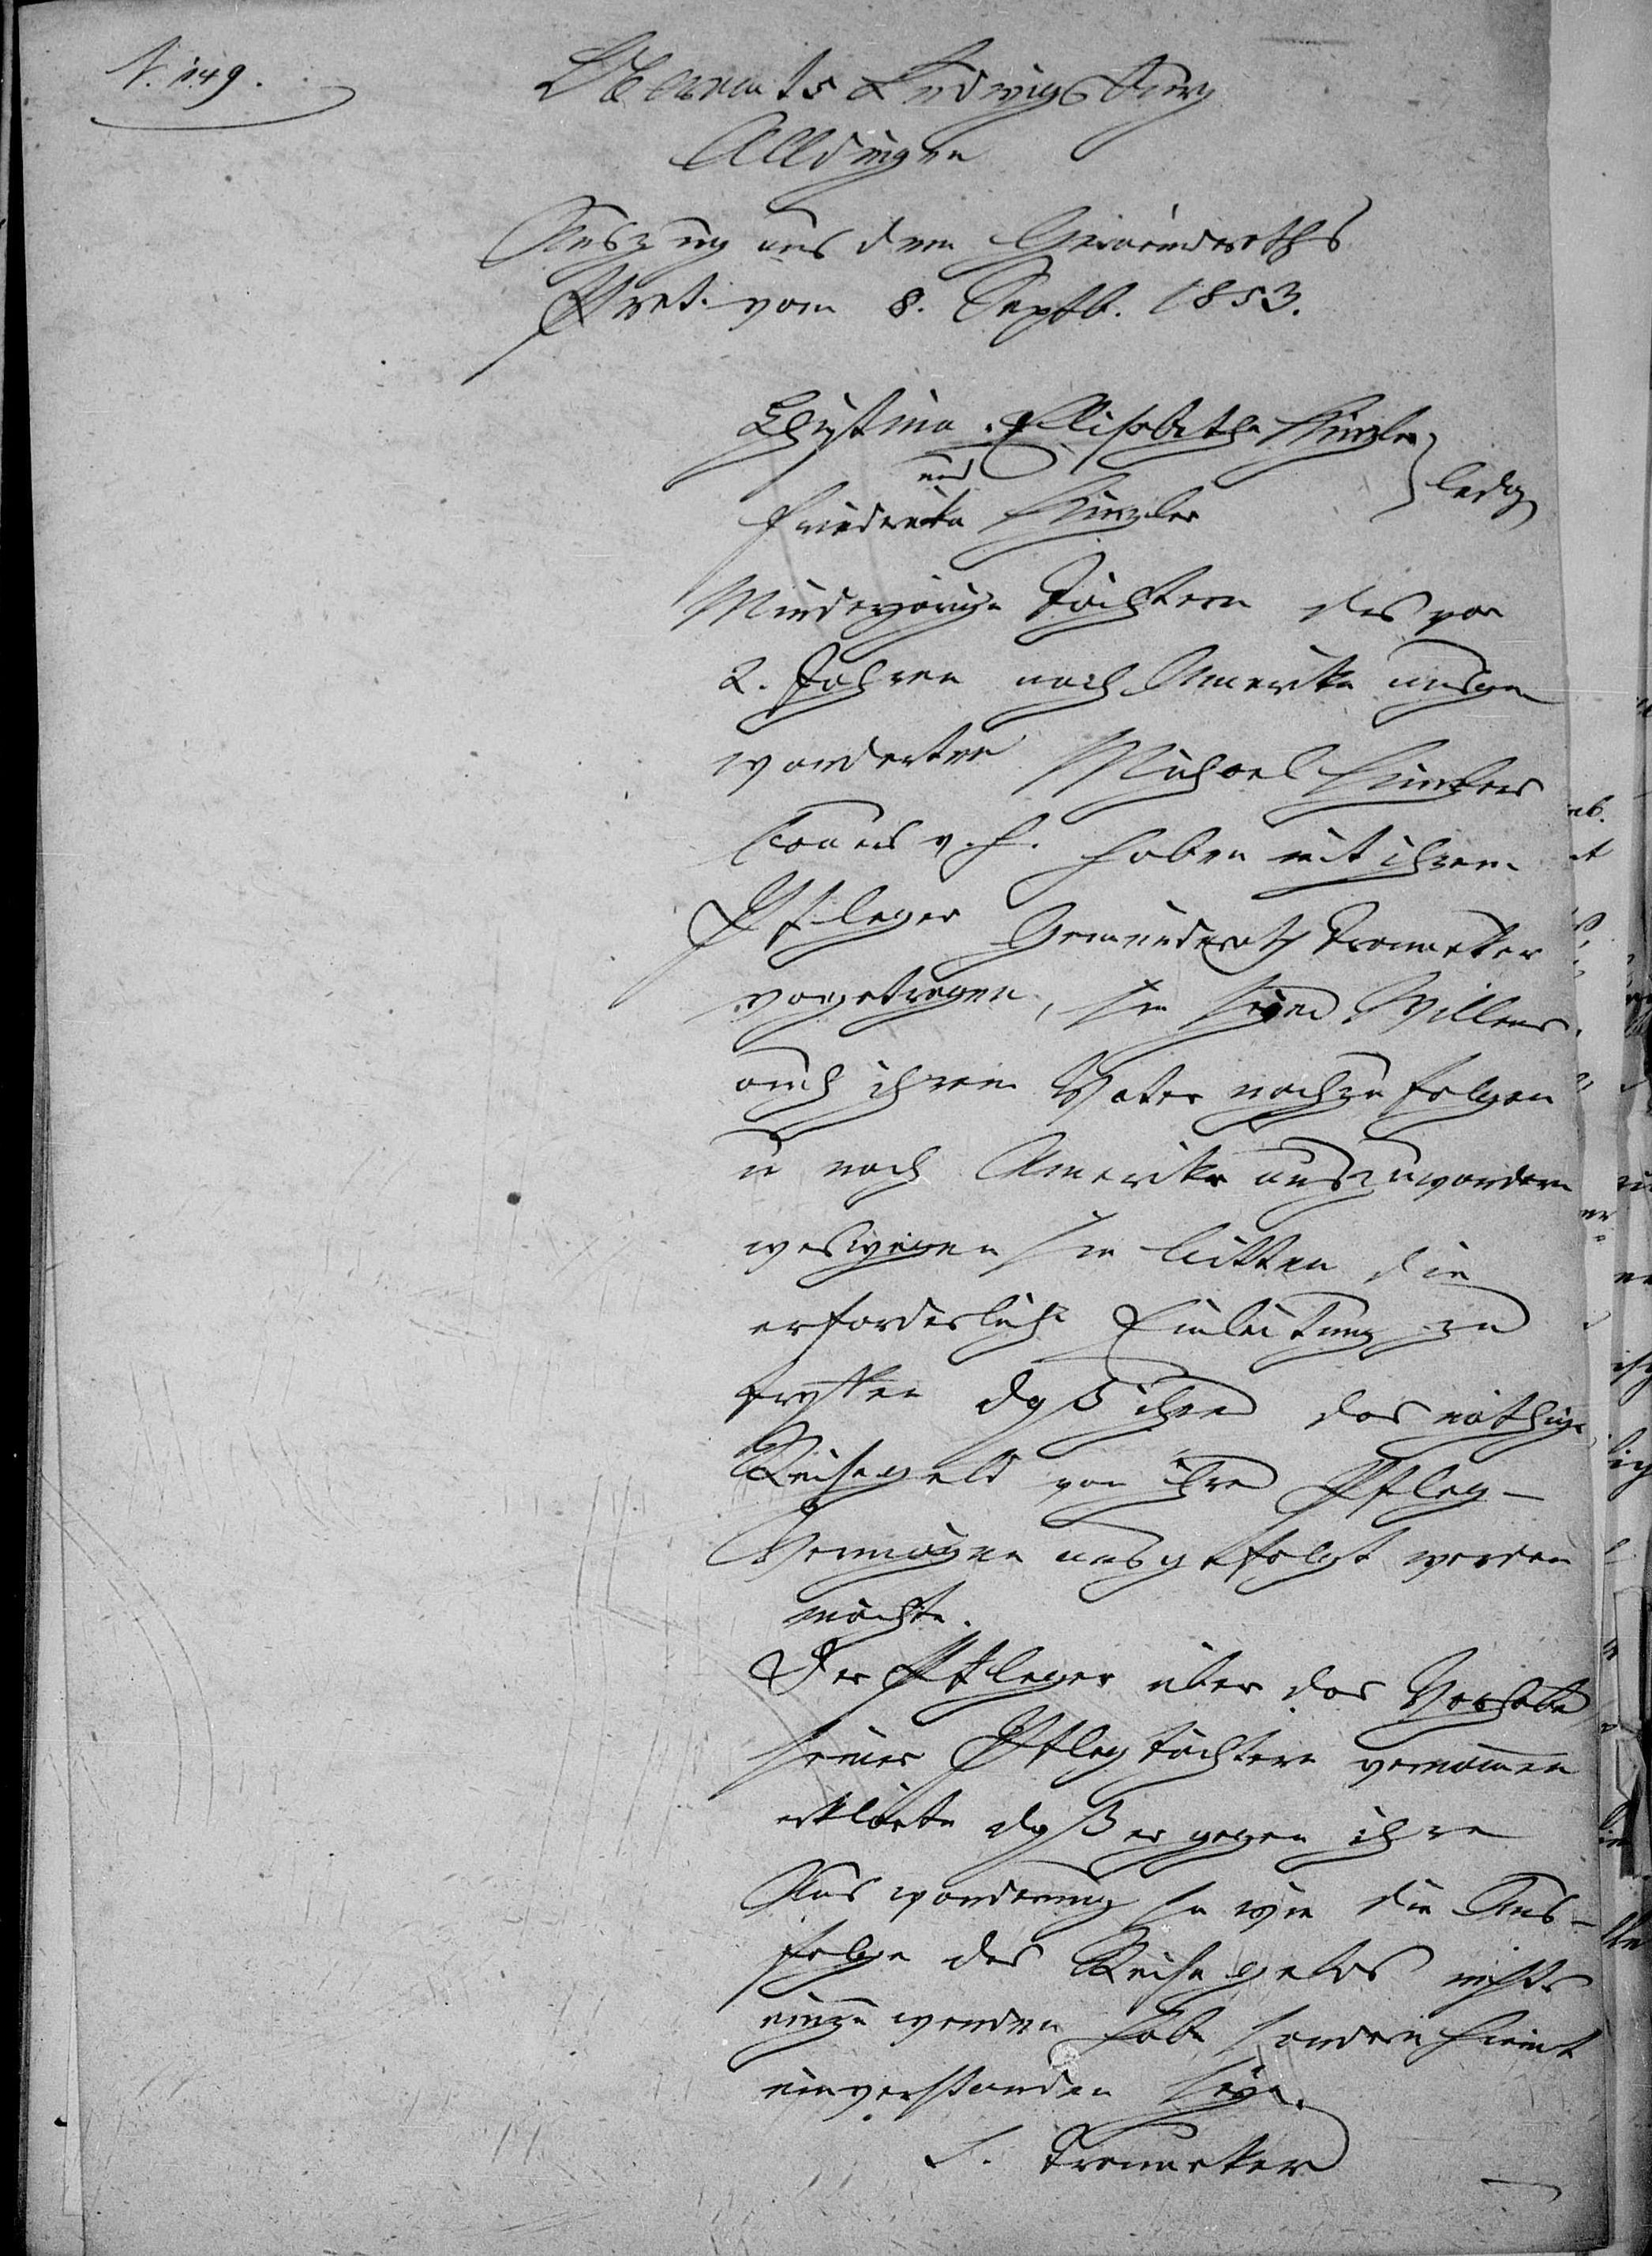 N. 149.
Oberamts Ludwigsburg
Alldingen
Auszug aus dem Gemeinderaths
Prot. vom 8. Septb. 1853.
Christina Elisabetha Kinzler
und
Friederika Kinzler
ledig
Minderjärige Töchtern des vor
2. Jahren nach Amerika ausge
wanderten Michael Kinzlers
haben mit ihrem
Pfleger Gemeinderath Trommeter
vorgetragen, sie seyen Willens
auch ihrem Vater nachzufolgen
u nach Amerika auszuwandern
weßwegen sie bitten die
erforderliche Einleitung zu
treffen daß ihnen das nöthige
Reisegeld von ihrem Pfleg-
Vermögen ausgefolgt werden
möchte.
Der Pfleger über das Vorhaben
seiner Pflegtöchtern vernommen
erklärte daß er gegen ihre
Auswanderung so wie die Aus-
folge des Reisegelds nichts
einzuwenden habe sondern hiemit
einverstanden seye.
T. Trommeter